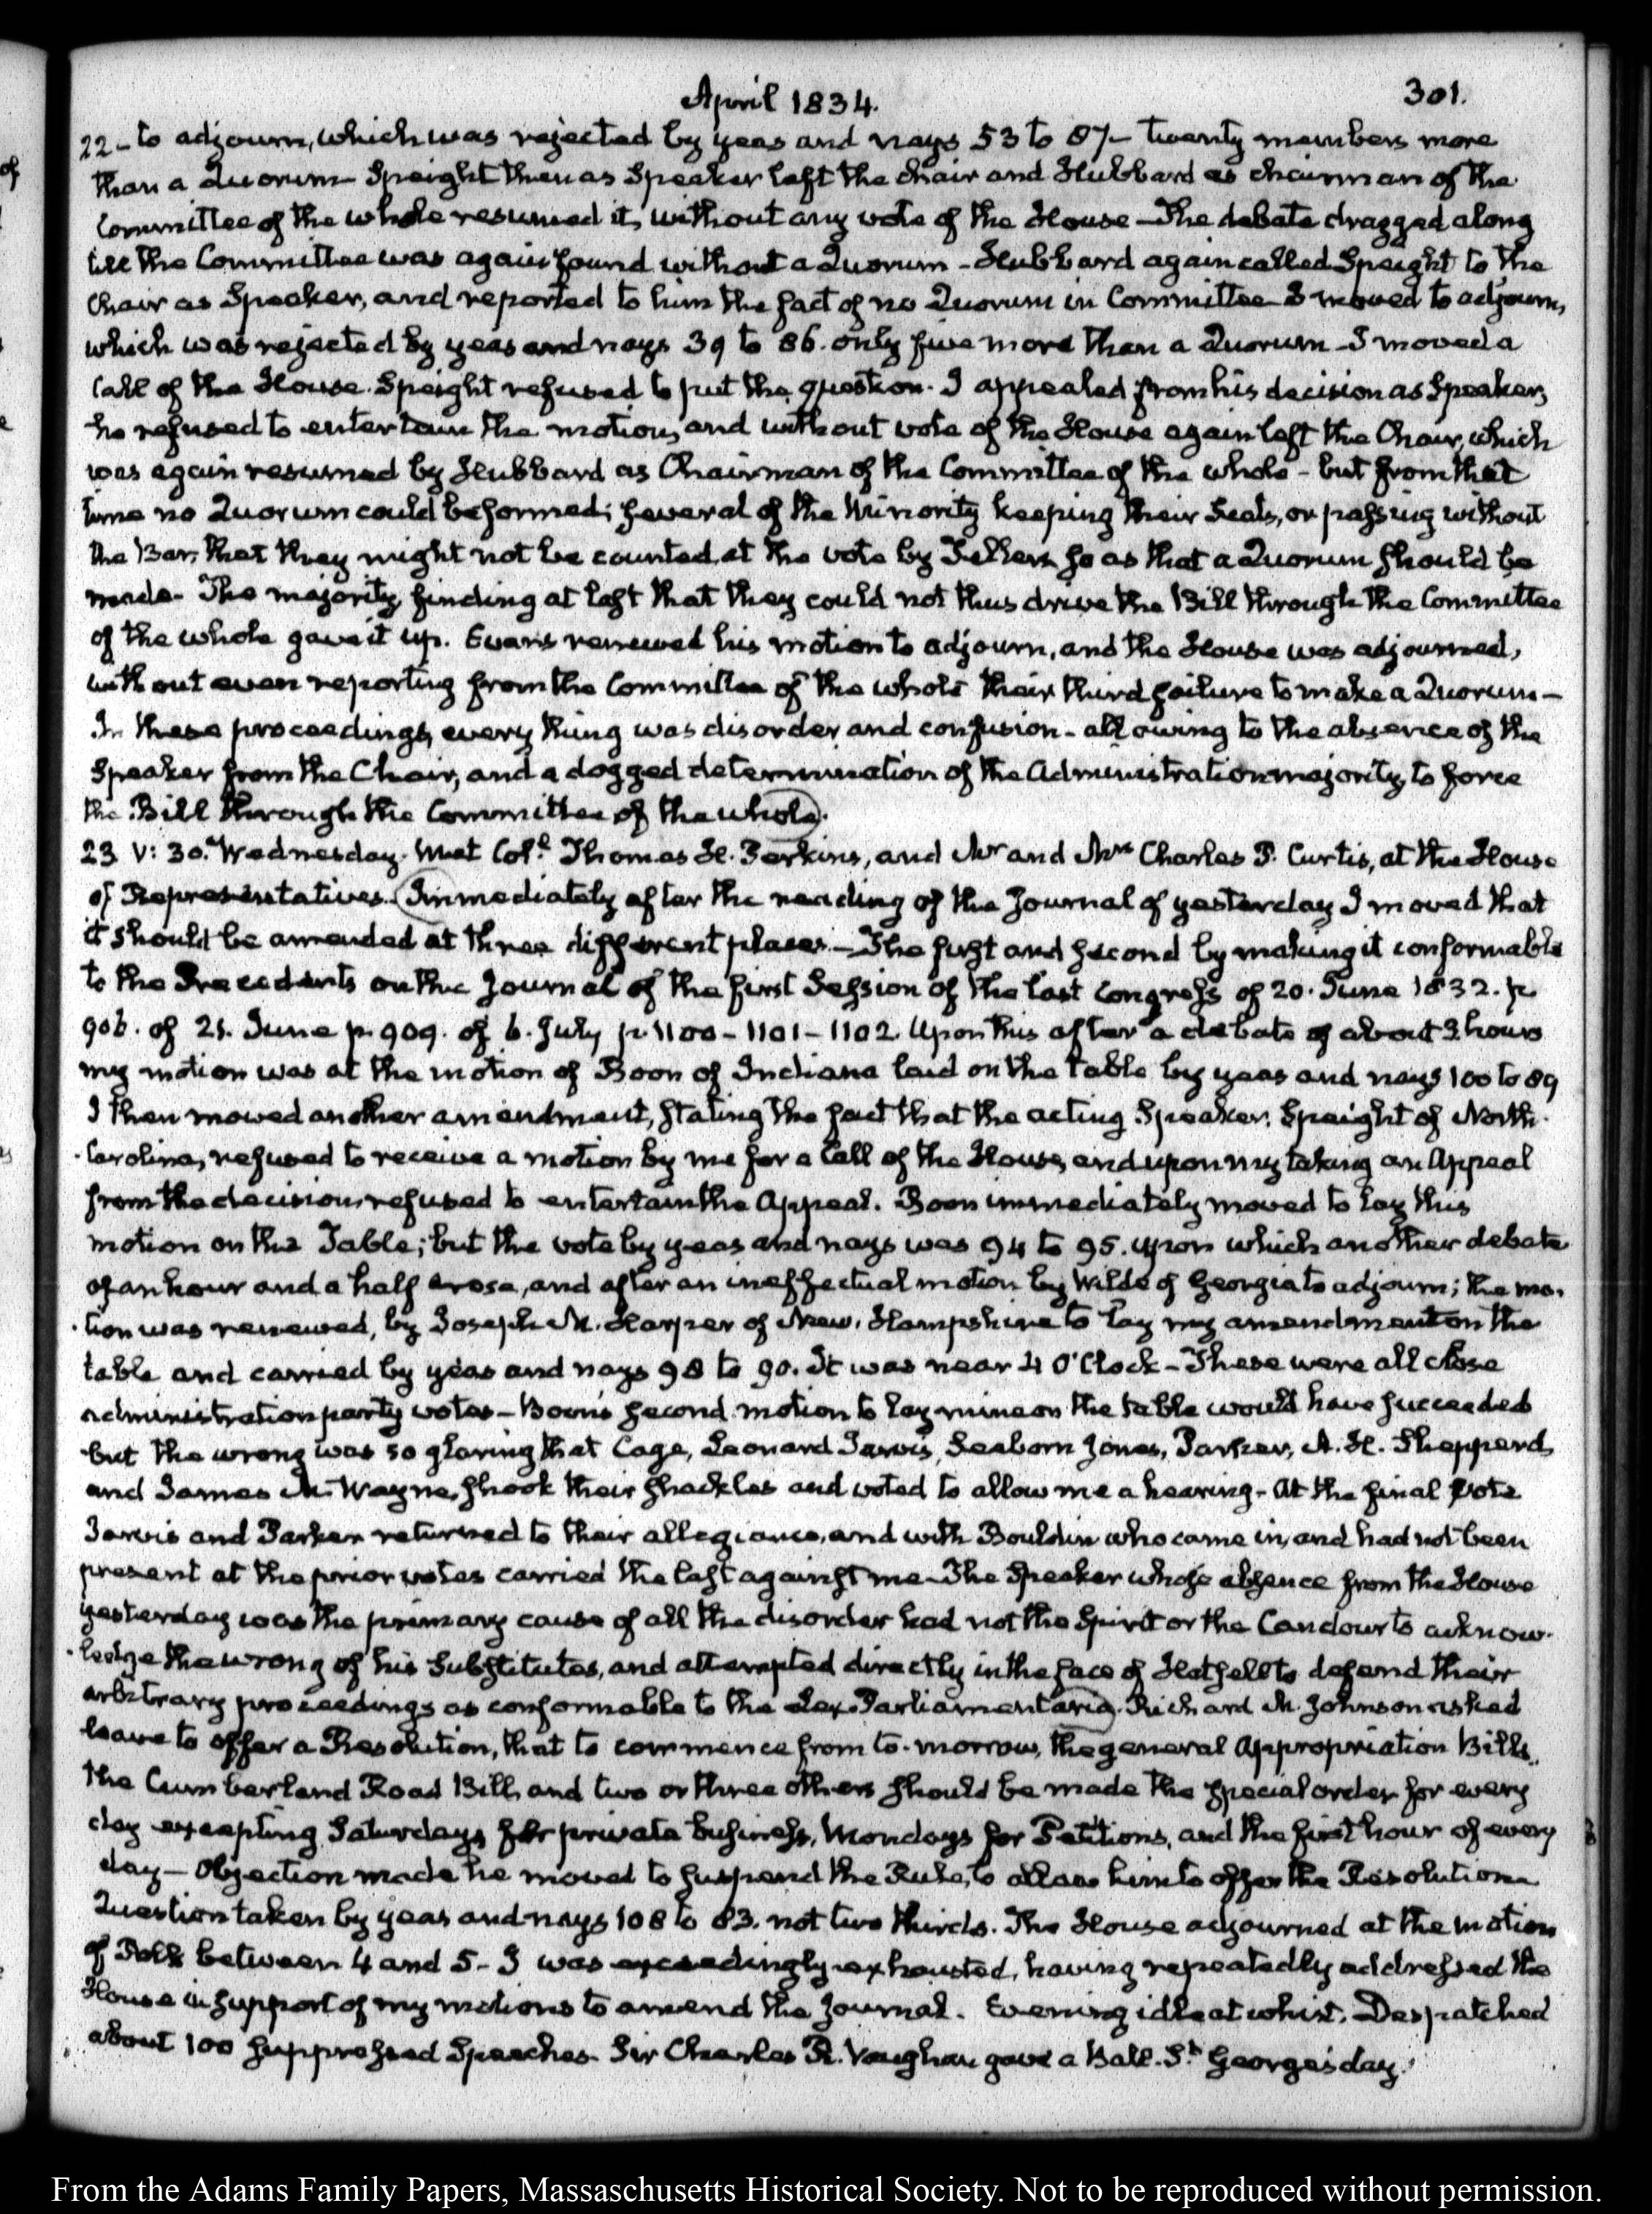 April 1834.
301.
22- to adjourn, which was rejected by yeas and nays 53 to 87- twenty members more
than a Quorum- Speight then as Speaker left the chair and Hubbard as chairman of the
Committee of the whole resumed it, without any vote of the House - The debate dragged along
till the Committee was again found without a Quorum - Hubbard again called Speight to the
Chair as Speaker, and reported to him the fact of no Quorum in Committee I moved to adjourn,
which was rejected by yeas and nays 39 to 86. only five more than a Quorum - I moved a
Call of the House. Speight refused to put the question. I appealed from his decision as Speaker,
he refused to entertain the motion, and without vote of the House again left the Chair, which
was again resumed by Hubbard as Chairman of the Committee of the whole - but from that
time no Quorum could be formed; several of the Minority keeping their Seats, or passing without
the Bar, that they might not be counted at the vote by Tellers so as that a Quorum should be
made- The majority finding at last that they could not thus drive the Bill through the Committee
of the whole gave it up. Evans renewed his motion to adjourn, and the House was adjourned,
without even reporting from the Committee of the whole their third failure to make a Quorum-
In these proceedings, every thing was disorder and confusion - all owing to the absence of the
Speaker from the Chair, and a dogged determination of the Administration majority, to force
the Bill through the Committee of the whole.
23. V: 30. Wednesday. Met Col.l Thomas H. Perkins, and Mr and Mrs Charles P. Curtis, at the House
of Representatives. Immediately after the reading of the Journal of yesterday I moved that
it should be amended at three different places. - The first and second by making it conformable
to the Precedents on the Journal of the first Session of the last Congress of 20. June 1832. p.
906. of 21. June p. 909. of 6. July p. 1100-1101-1102. Upon this after a debate of about 3 hours
my motion was at the motion of Boon of Indiana laid on the table by yeas and nays 100 to 89
I then moved another amendment, stating the fact that the acting Speaker, Speight of North-
-Carolina, refused to receive a motion by me for a Call of the House, and upon my taking an Appeal
from the decision, refused to entertain the Appeal. Boon immediately moved to lay this
motion on the Table; but the vote by yeas and nays was 94 to 95. upon which another debate
of an hour and a half arose, and after an ineffectual motion by Wilde of Georgia to adjourn; the mo-
-tion was renewed, by Joseph M. Harper of New-Hampshire to lay my amendment on the
table and carried by yeas and nays 98 to 90. It was near 4 O'Clock - These were all close
administration party votes - Boon's second motion to lay mine on the table would have succeeded
but the wrong was so glaring that Cage, Leonard Jarvis, Seaborn Jones, Parker, A. H. Shepperd,
and James M. Wayne, shook their shackles and voted to allow me a hearing - At the final vote
Jarvis and Parker returned to their allegiance, and with Bouldin who came in, and had not been
present at the prior votes carried the last against me - The Speaker whose absence from the House
yesterday was the primary cause of all the disorder had not the Spirit or the Candour to acknow-
-ledge the wrong of his Substitutes, and attempted directly in the face of Hatsell to defend their
arbitrary proceedings as conformable to the Lex Parliamentaria. Richard M. Johnson asked
leave to offer a Resolution, that to commence from to-morrow, the general Appropriation Bills,
the Cumberland Road Bill, and two or three others should be made the special order for every
day excepting Saturdays for private business, Mondays for Petitions, and the first hour of every
day - Objection made he moved to suspend the Rule, to allow him to offer the Resolution
Question taken by yeas and nays 108 to 83. not two thirds. The House adjourned at the motion
of Polk between 4 and 5 - I was exceedingly exhausted, having repeatedly addressed the
House in support of my motions to amend the Journal. Evening idle at whist. Despatched
about 100 suppressed Speeches. Sir Charles R. Vaughan gave a Ball. St. George's day.
From the Adams Family Papers, Massachusetts Historical Society. Not to be reproduced without permission.